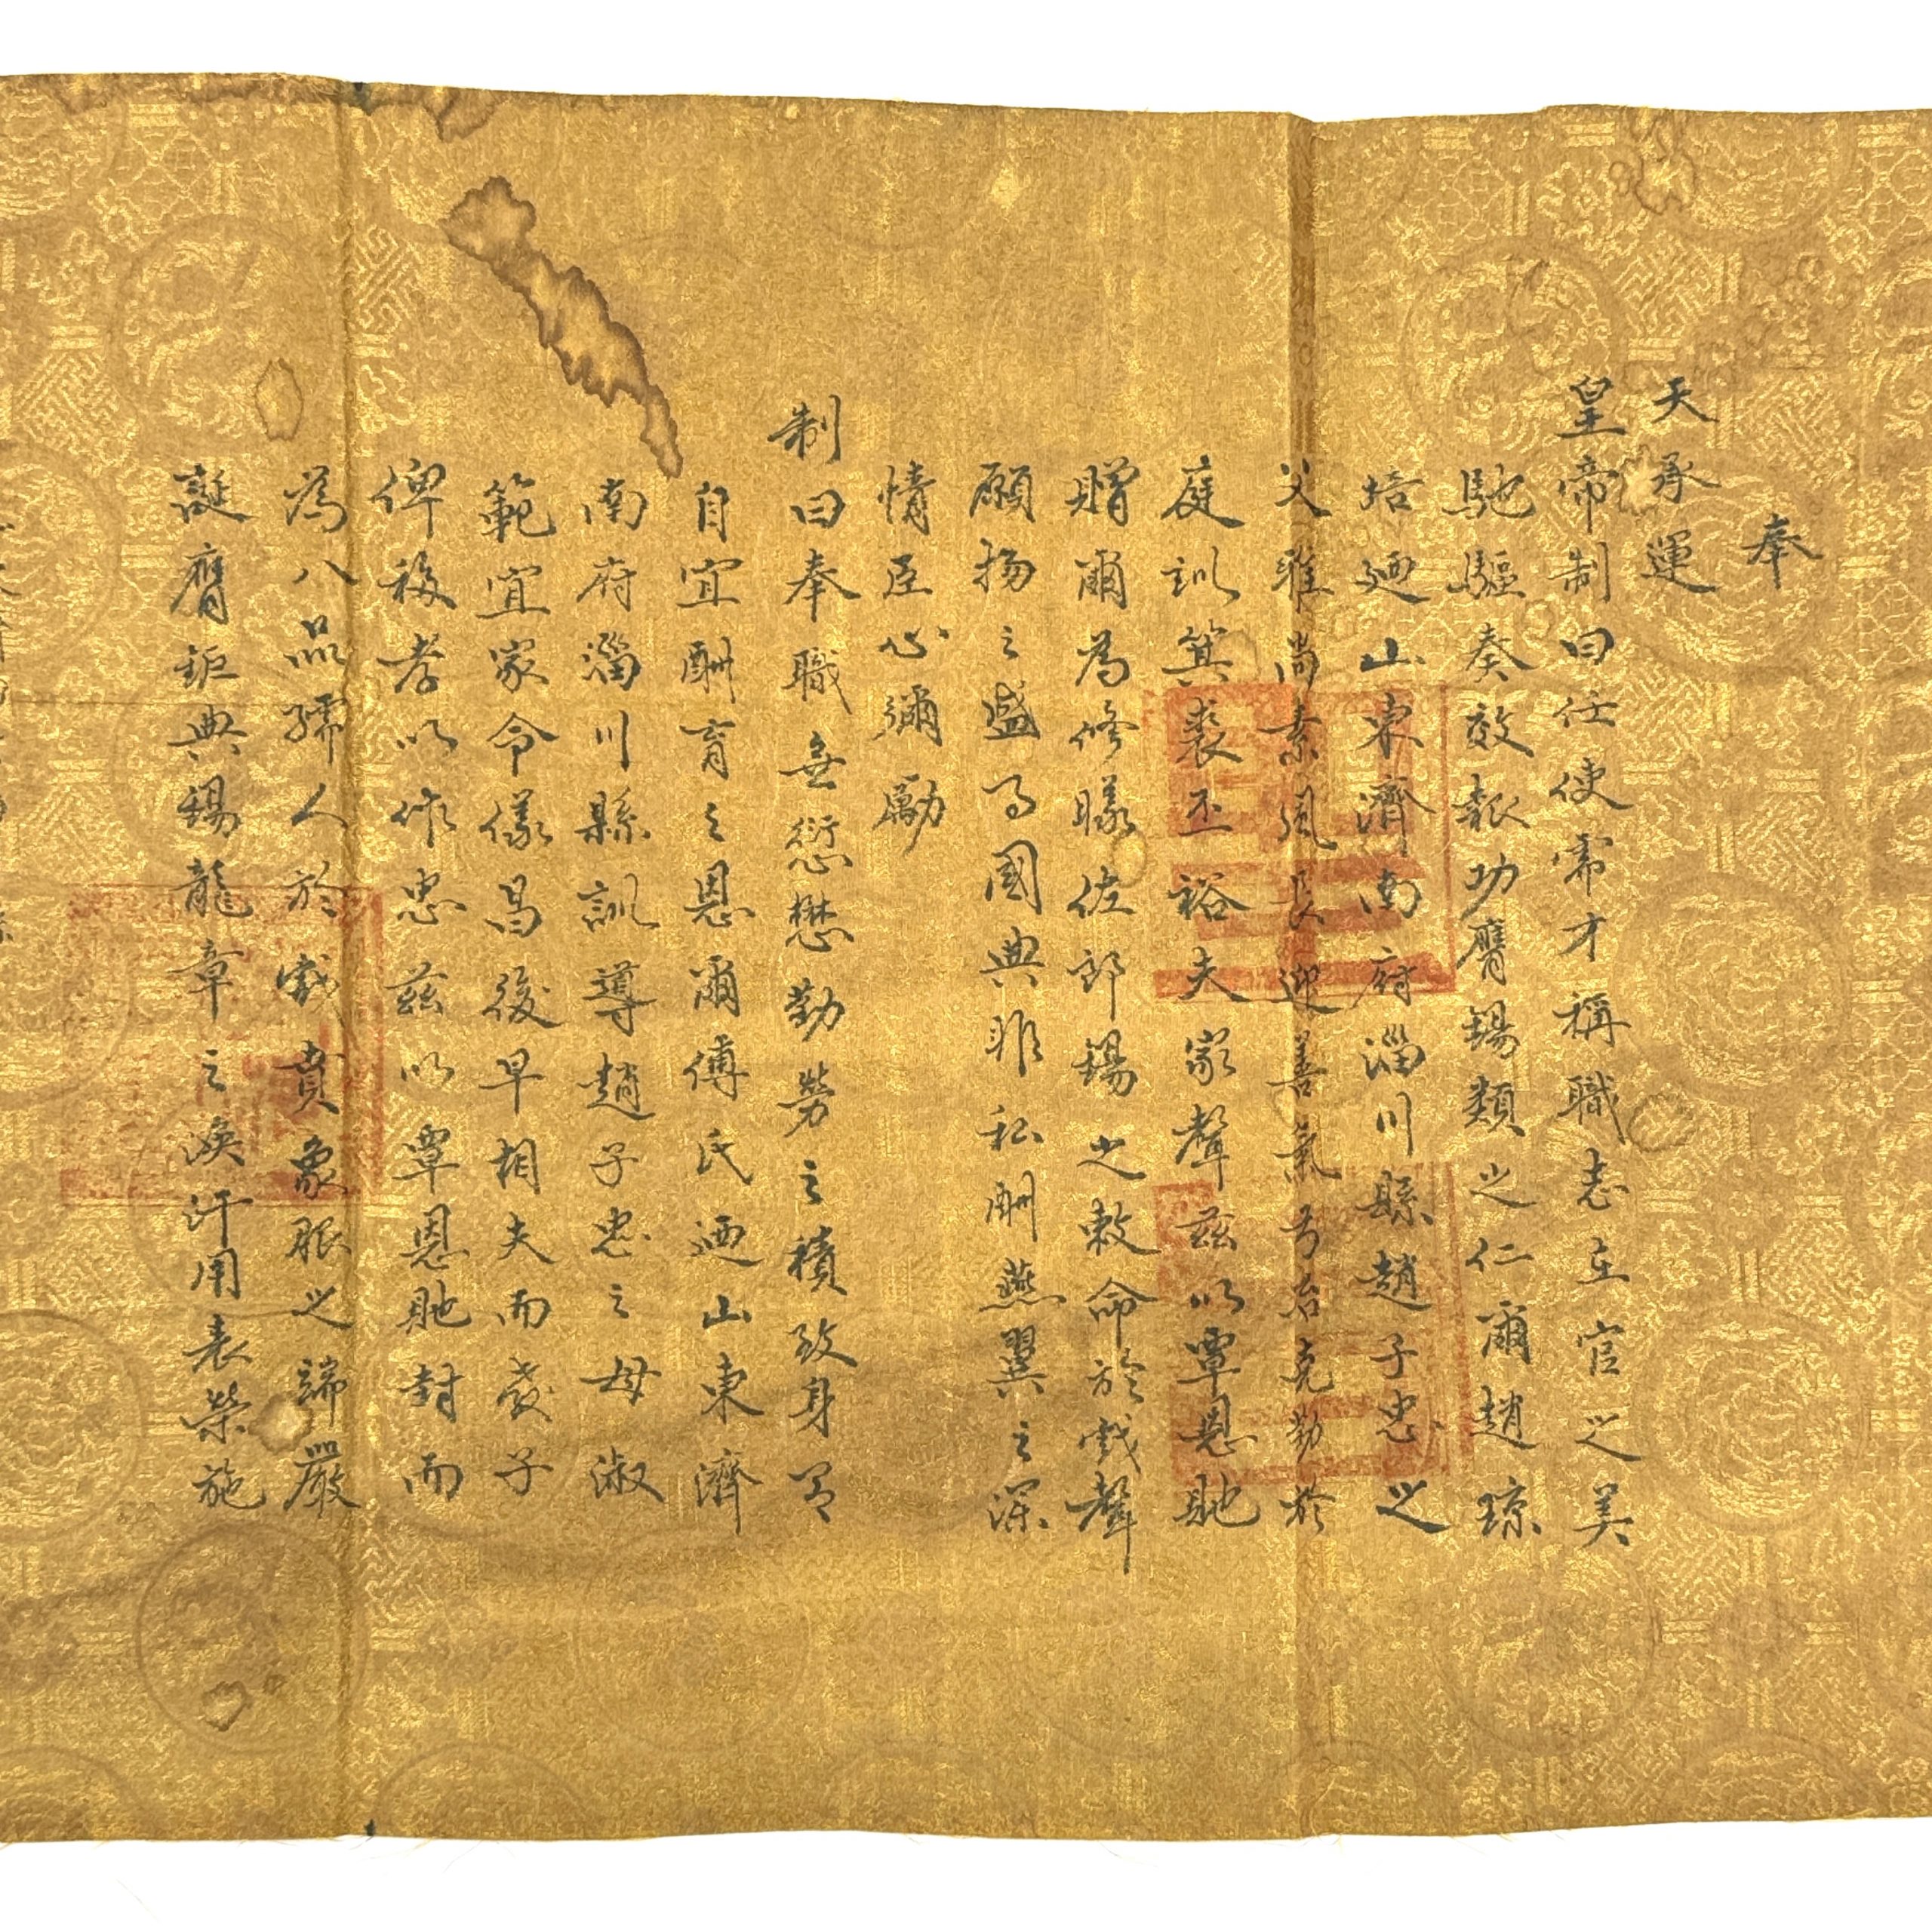 奉
天承運
皇帝制曰任使需才稱職志在官之美
馳驅奏效報功膺錫類之仁爾趙琼
培迺山東濟南府淄川縣趙子忠之
父雅尚素風長迎善氣弓冶克勤於
庭訓箕裘丕裕夫家聲茲以覃恩馳
贈爾為修職佐郎錫之敕命於戲聲
願揚之盛事國典非私酬燕翼之深
情臣心彌勵
制曰奉職無愆懋勤勞之積致身有
自宜酬育之恩爾傅氏迺山東濟
南府淄川縣訓導趙子忠之母淑
範宜家令儀昌後早相夫而教子
俾移孝以作忠茲以覃恩馳封而
為八品孺人於戲賁象服之端嚴
誕膺鉅典錫龍章之渙汗用表榮施